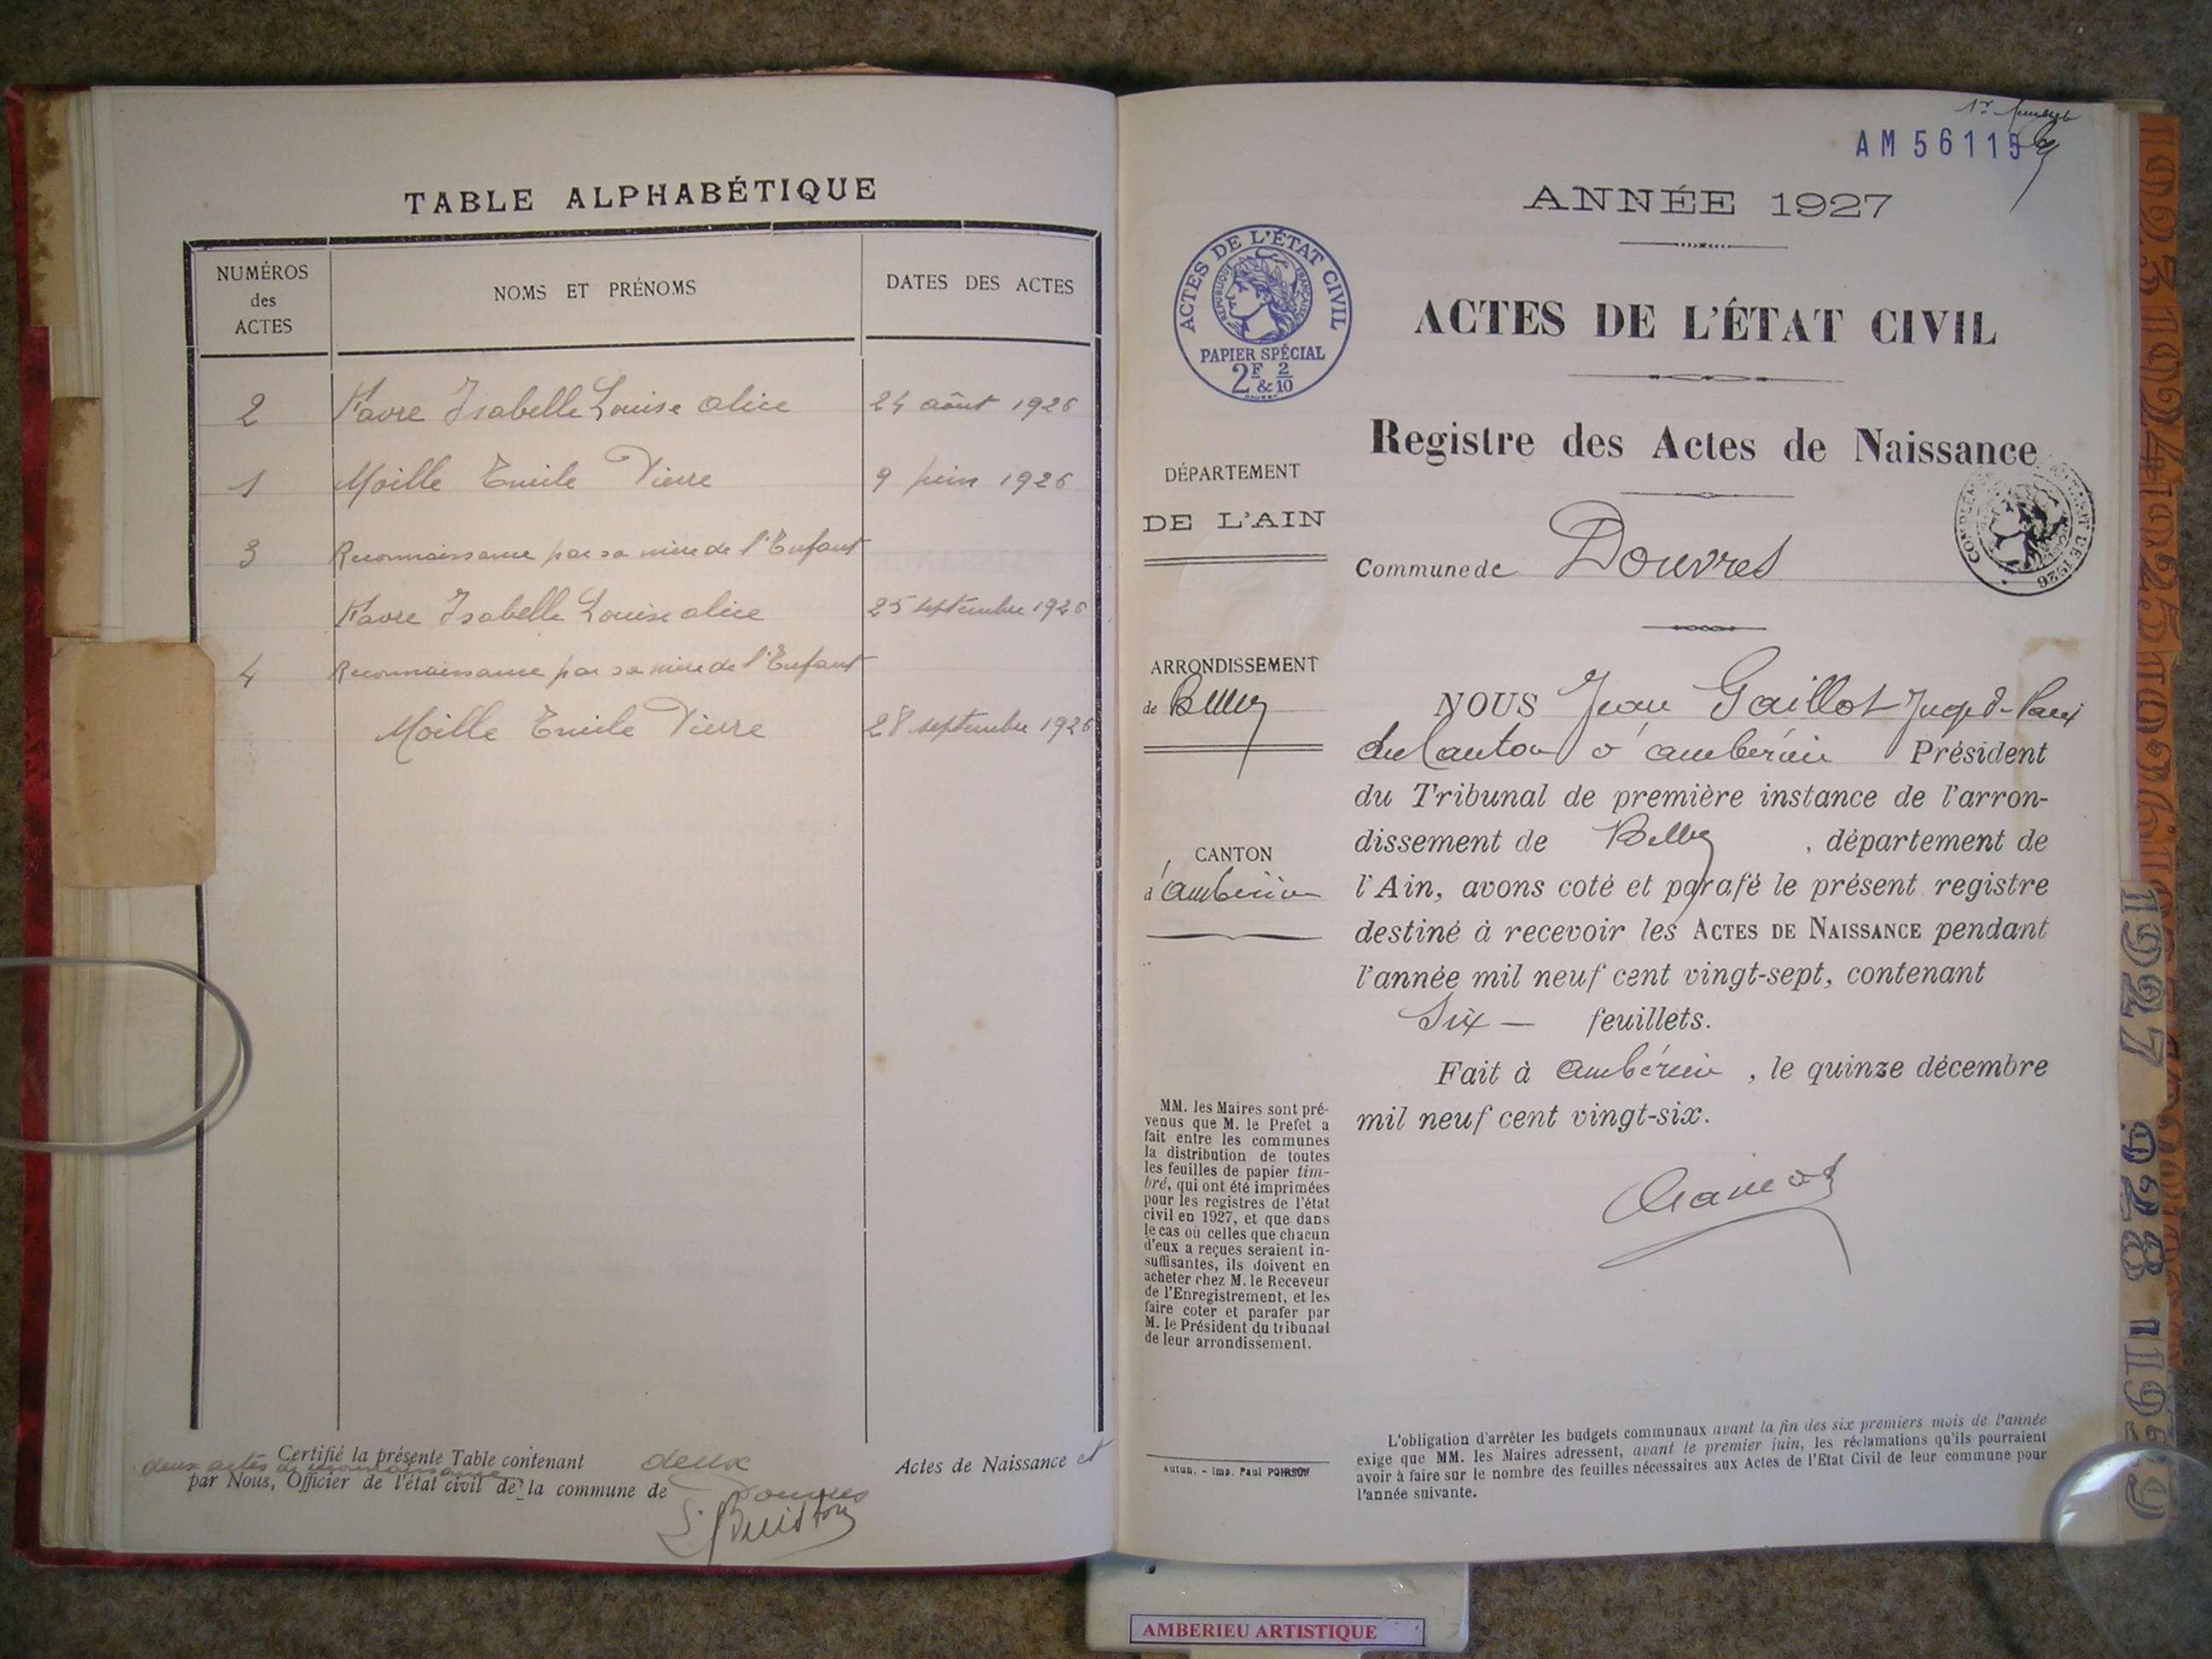 TABLE ALPHABÉTIQUE
NUMÉROS
des
ACTES
NOMS ET PRÉNOMS
DATES DES ACTES
2 Favre Isabelle Louise Alice 24 août 1926
1 Moille Emile Pierre 9 juin 1926
3 Reconnaissance par sa mère de l'Enfant
Favre Isabelle Louise Alice 25 septembre 1926
4 Reconnaissance par sa mère de l'Enfant
Moille Emile Pierre 28 septembre 1926
Certifié la présente Table contenant deux Actes de Naissance et
deux actes de reconnaissance
par Nous, Officier de l'état civil de la commune de Douvres
AM 56115
ANNÉE 1927
ACTES DE L'ÉTAT CIVIL
RÉPUBLIQUE FRANÇAISE
PAPIER SPÉCIAL
2F & 2/10
ACTES DE L'ÉTAT CIVIL
Registre des Actes de Naissance
DÉPARTEMENT
DE L'AIN
Commune de Douvres
DE 1926
ARRONDISSEMENT
de Belley
CANTON
d'Ambérieu
NOUS Jean Gaillot Juge de Paix
du Canton d'Ambérieu Président
du Tribunal de première instance de l'arron-
dissement de Belley, département de
l'Ain, avons coté et parafé le présent registre
destiné à recevoir les ACTES DE NAISSANCE pendant
l'année mil neuf cent vingt-sept, contenant
Six — feuillets.
Fait à Ambérieu, le quinze décembre
mil neuf cent vingt-six.
MM. les Maires sont pré-
venus que M. le Prefet a
fait entre les communes
la distribution de toutes
les feuilles de papier tim-
bré, qui ont été imprimées
pour les registres de l'état
civil en 1927, et que dans
le cas où celles que chacun
d'eux a reçues seraient in-
suffisantes, ils doivent en
acheter chez M. le Receveur
de l'Enregistrement, et les
faire coter et parafer par
M. le Président du tribunal
de leur arrondissement.
Autun. - Imp. Paul POIRSON
L'obligation d'arrêter les budgets communaux avant la fin des six premiers mois de l'année
exige que MM. les Maires adressent, avant le premier juin, les réclamations qu'ils pourraient
avoir à faire sur le nombre des feuilles nécessaires aux Actes de l'Etat Civil de leur commune pour
l'année suivante.
1927
1928
AMBERIEU ARTISTIQUE